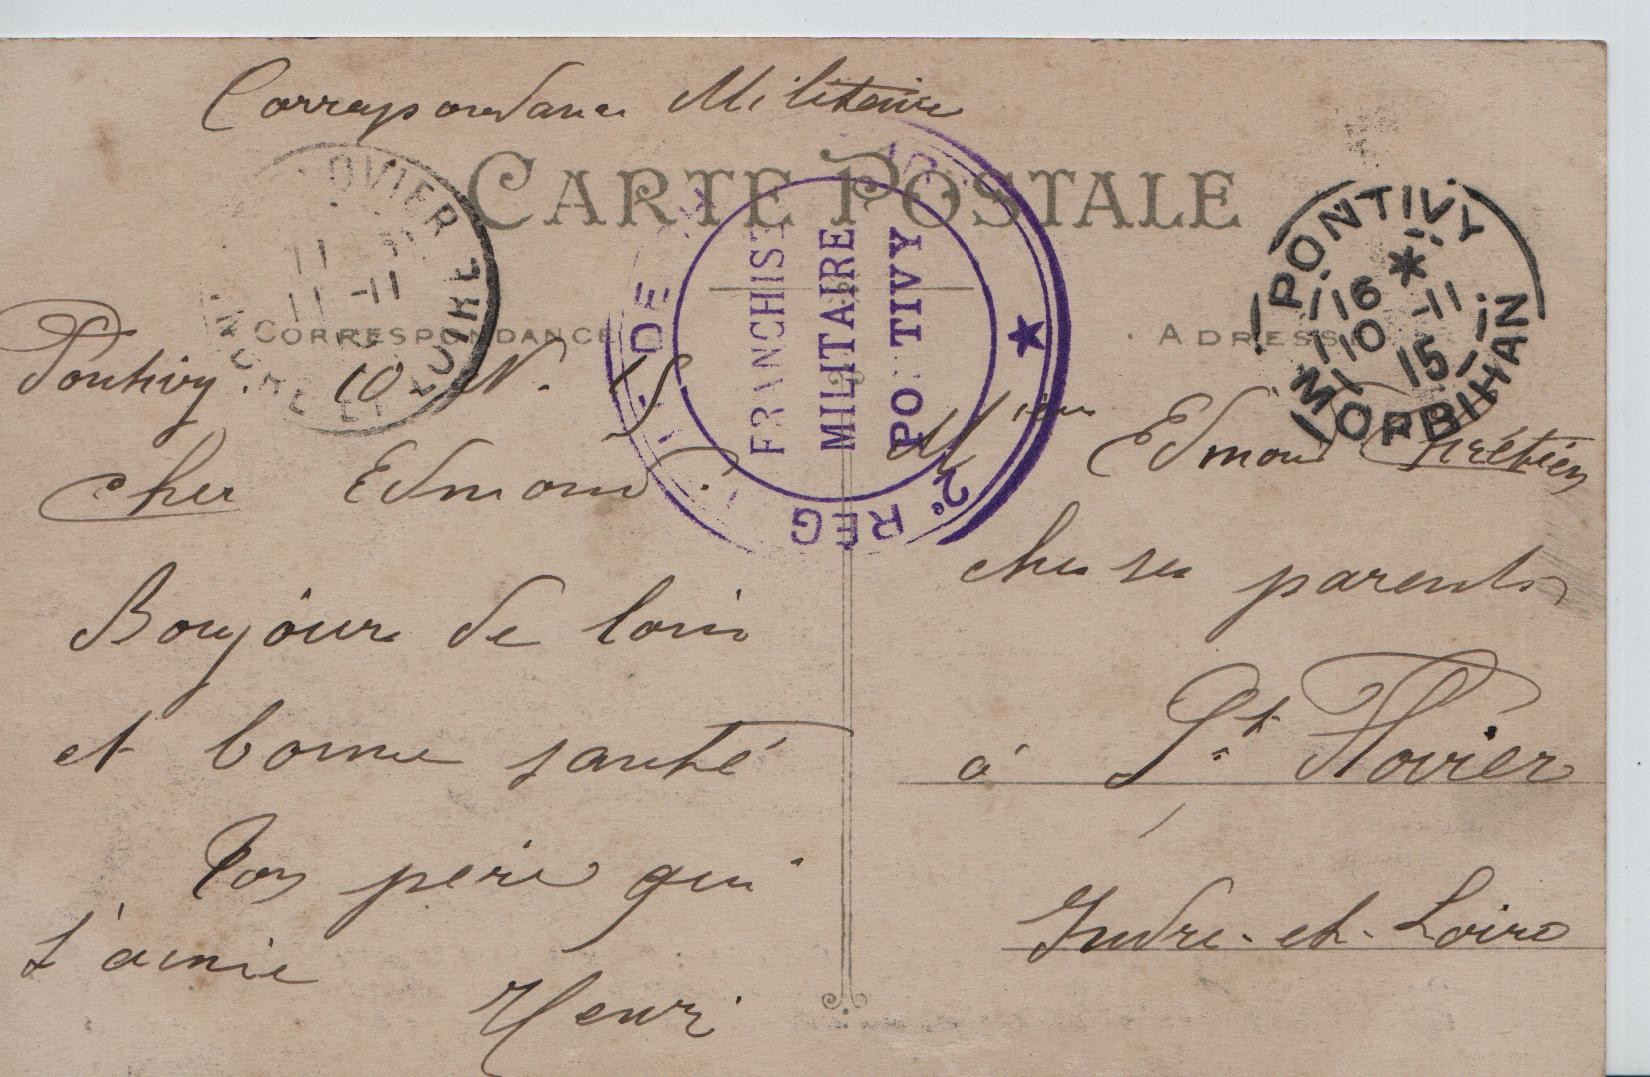 Correspondance Militaire
CARTE POSTALE
CORRESPONDANCE
ADRESSE
OVIER
11 -11
15
INDRE ET LOIRE
FRANCHISE
MILITAIRE
PONTIVY
2e REG
DE
PONTIVY
16
10 -11
15
MORBIHAN
Pontivy. 10. N. 15
cher Edmond.
Boujour de loin
et bonne santé
Ton père qui
t'aime
Henri
Edmond Chrétien
chez ses parents
à St. Flovier
Indre-et-Loire